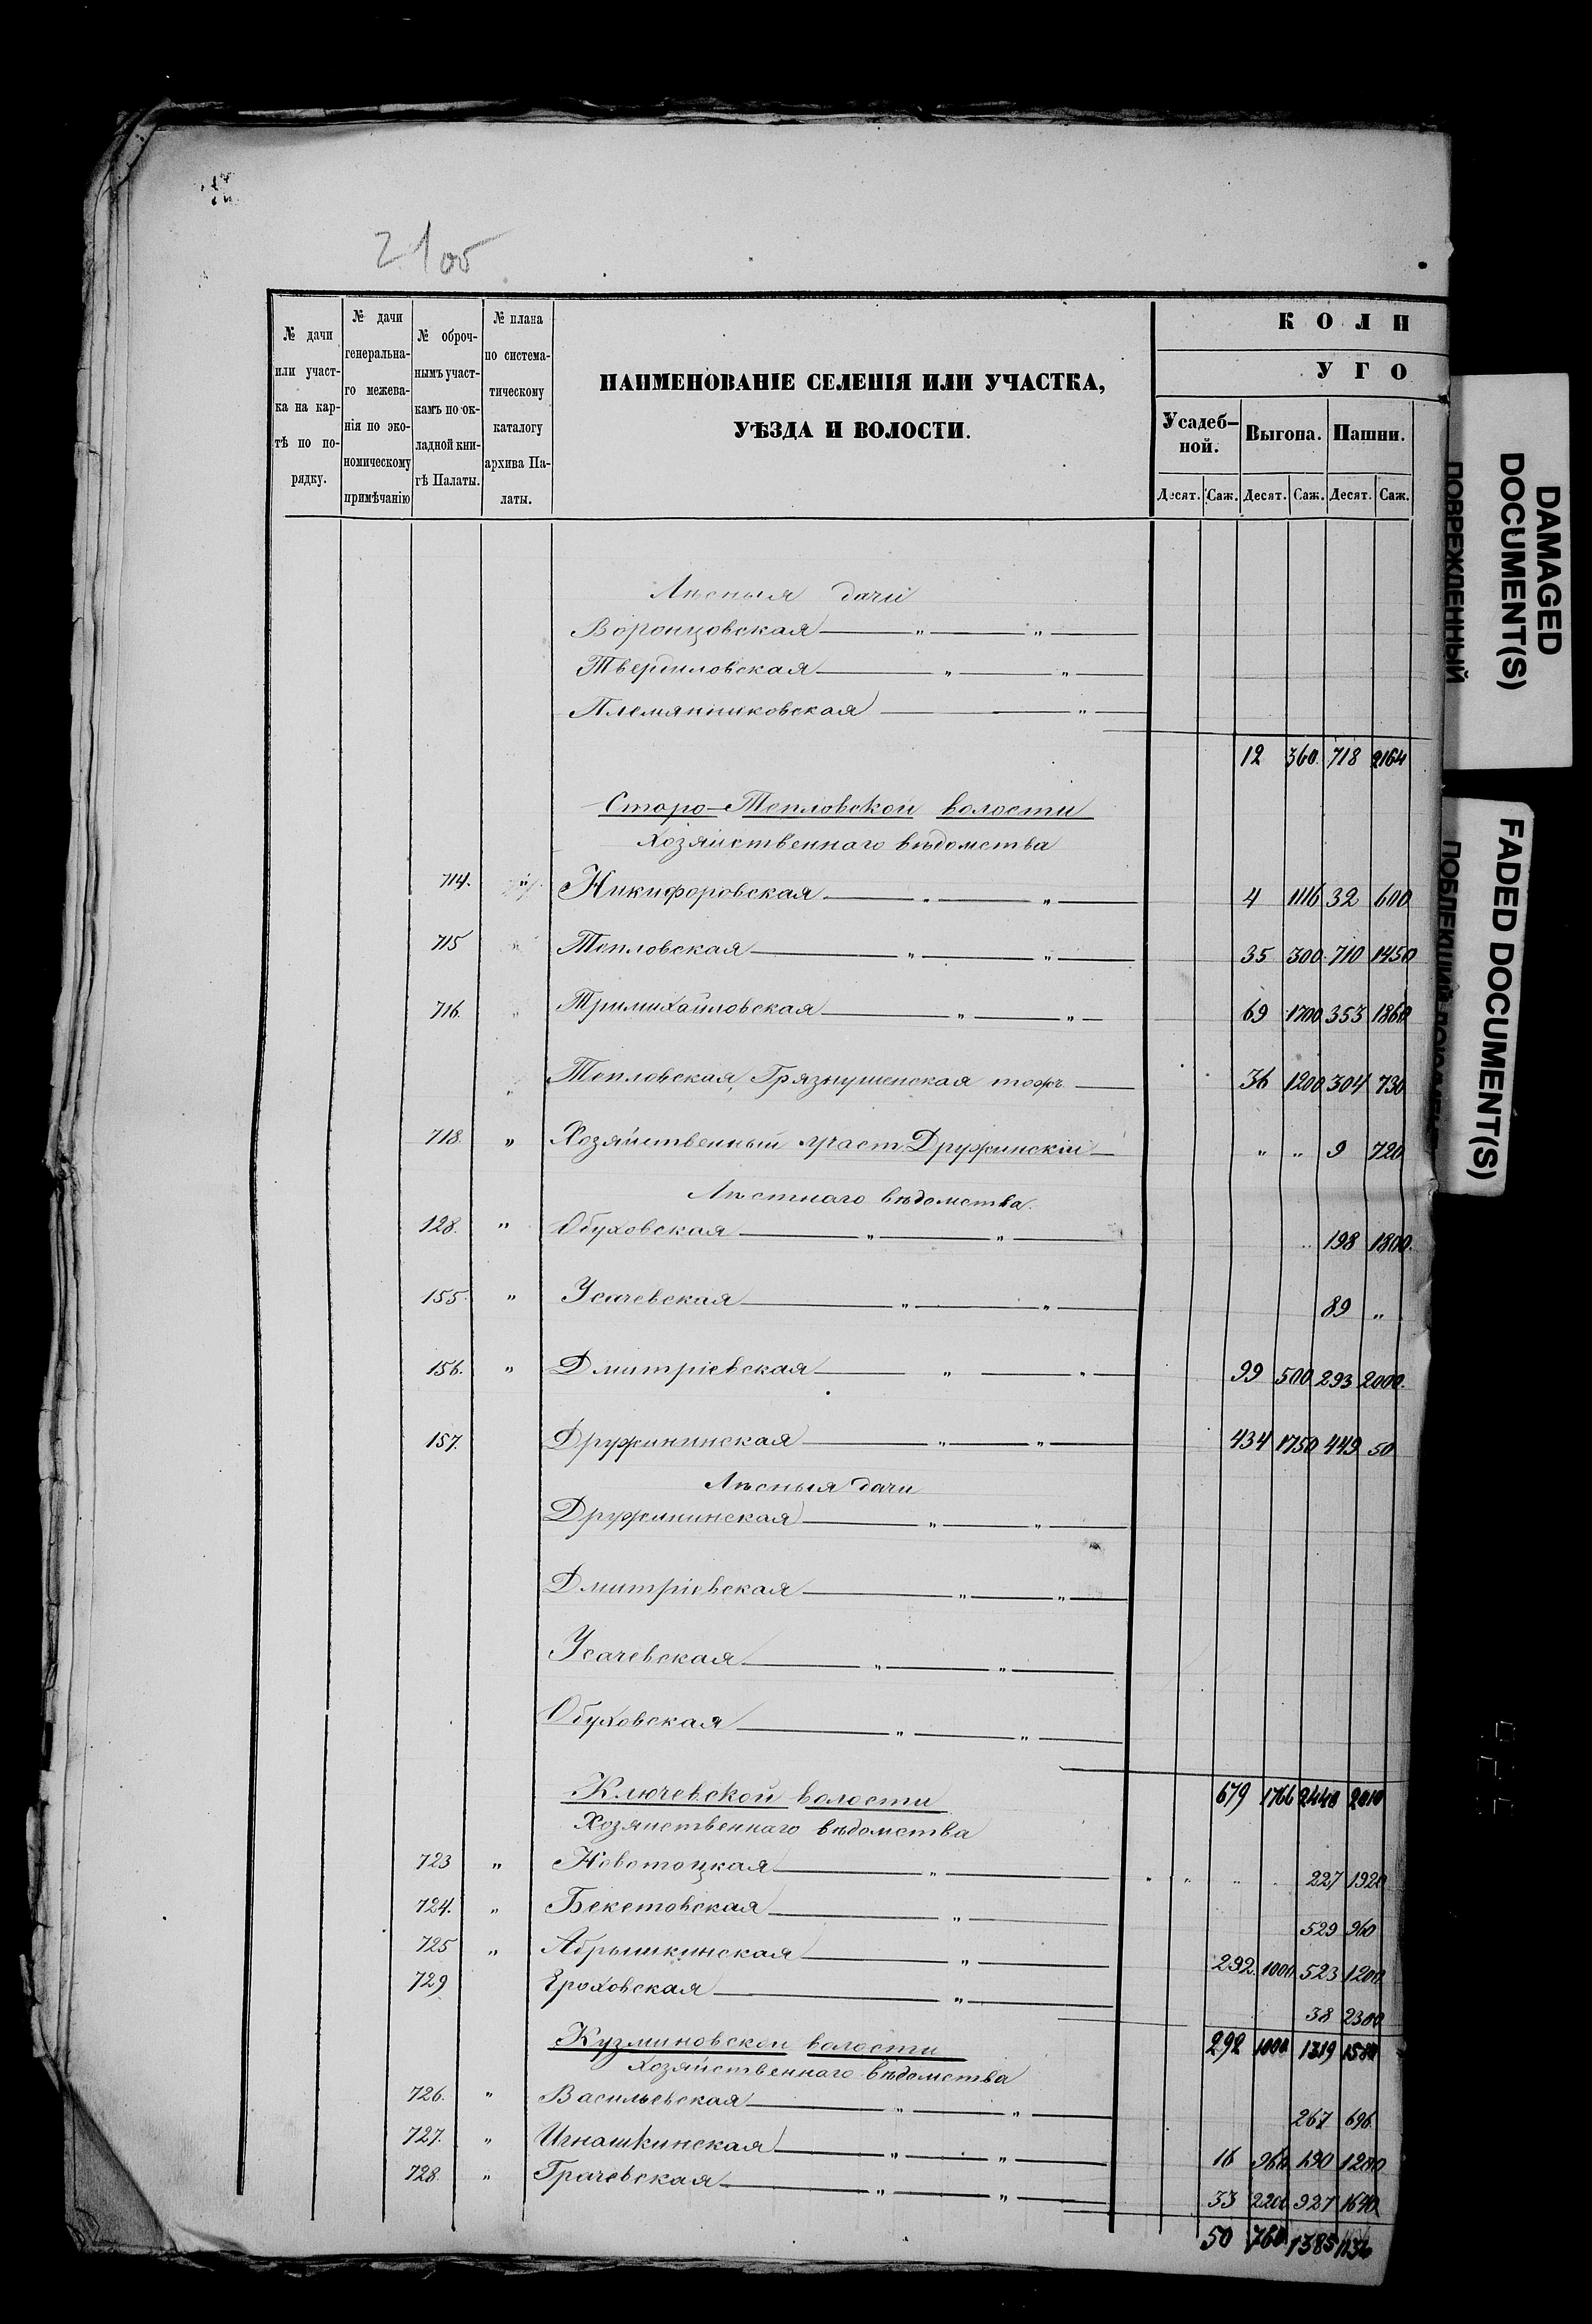 2100
№ дачи или участ-ка на кар-тѣ по по-рядку.
№ дачи генеральна-го межева-нія по эко-номическому примѣчанію
№ оброч-нымъ участ-камъ по ок-ладной кни-гѣ Палаты.
№ плана по система-тическому каталогу архива Па-латы.
НАИМЕНОВАНІЕ СЕЛЕНІЯ ИЛИ УЧАСТКА,
УѢЗДА И ВОЛОСТИ.
КОЛИ
УГО
Усадеб-ной. Выгона. Пашни.
Десят. Саж. Десят. Саж. Десят. Саж.
Лѣсныя дачи
Воронцовская — „ — „ —
Твердиловская — „ — „ —
Племянниковская — „ —
12 360 718 2164
Старо-Тепловской волости
Хозяйственнаго вѣдомства
714. Никифоровская — „ — „ — 4 1116 32 600
715 Тепловская — „ — „ — 35 300 710 1450
716. Тримихайловская — „ — „ — 69 1700 353 1860
Тепловская, Грязнушенская тожъ — 36 1200 304 730
718. „ Хозяйственный участ Дружинскій — „ „ 9 720
Лѣснаго вѣдомства.
128. „ Обуховская — „ — „ — 198 1800.
155. „ Усачевская — „ — „ — 89 „
156. „ Дмитріевская — „ — „ — 99 500 293 2000.
157. Дружининская — „ — „ — 434 1750 449 50
Лѣсныя дачи
Дружининская — „ — „ —
Дмитріевская — „ — „ —
Усачевская — „ — „ —
Обуховская — „ — „ —
679 1766 2440 2010
Ключевской волости
Хозяйственнаго вѣдомства
723 „ Новотоцкая — „ — 227 1920
724. „ Бекетовская — „ — 529 960
725 „ Абрышкинская — „ — 292 1000 523 1200
729 Ероховская — „ — 38 2300
292 1000 1319 1580
Кузминовской волости
Хозяйственнаго вѣдомства
726. „ Васильевская — „ — „ — 267 696
727. „ Игнашкинская — „ — „ — 16 960 190 1200
728 „ Грачевская — „ — „ — 33 2200 927 1640
50 760 1385 1136
DAMAGED DOCUMENT(S)
ПОВРЕЖДЕННЫЙ
FADED DOCUMENT(S)